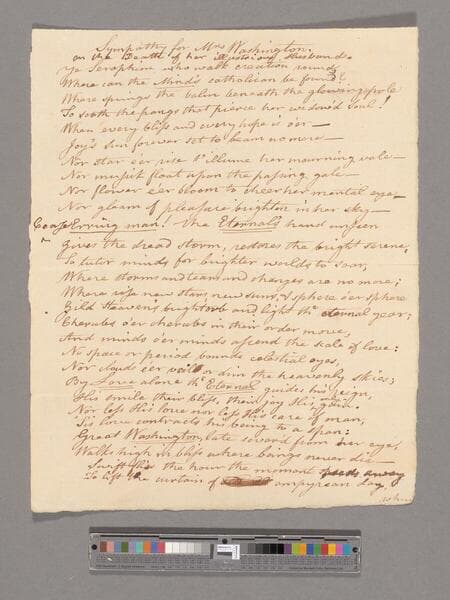 Sympathy for Mrs Washington.
on the Death of her illustrious Husband.
Ye Seraphim who walk creation round,
Where can the Mind's catholicon be found?
Where springs the balm beneath the glowing pole
To sooth the pangs that pierce her widow'd Soul!
When every bliss and every hope is o'er—
Joy's sun forever set to beam no more—
Nor star e'er rise t' illume her mourning vale—
Nor music float upon the passing gale—
Nor flower e'er bloom to cheer her mental eye—
Nor gleam of pleasure brighten in her sky—
Cease Erring man! The Eternal's hand unseen
Gives the dread storm, restores the bright serene,
To tutor minds for brighter worlds to soar,
Where storms and tears and changes are no more;
Where rise new stars, new suns, & sphere o'er sphere
Gild Heavens bright orb and light th' eternal year;
Cherubs o'er cherubs in their order move,
And minds o'er minds ascend the scale of love:
No space or period bounds celestial eyes,
Nor clouds e'er veil or dim the heavenly skies;
By Love alone th' Eternal guides his reign,
His smile their bliss, their joy His gain.
Nor less His love nor less His care of man,
'Tis love contracts his being to a span:
Great Washington, late sever'd from her eyes,
Walks high in bliss where beings never die—
Swift the hour the moment away
To lift the curtain of empyrean day
when